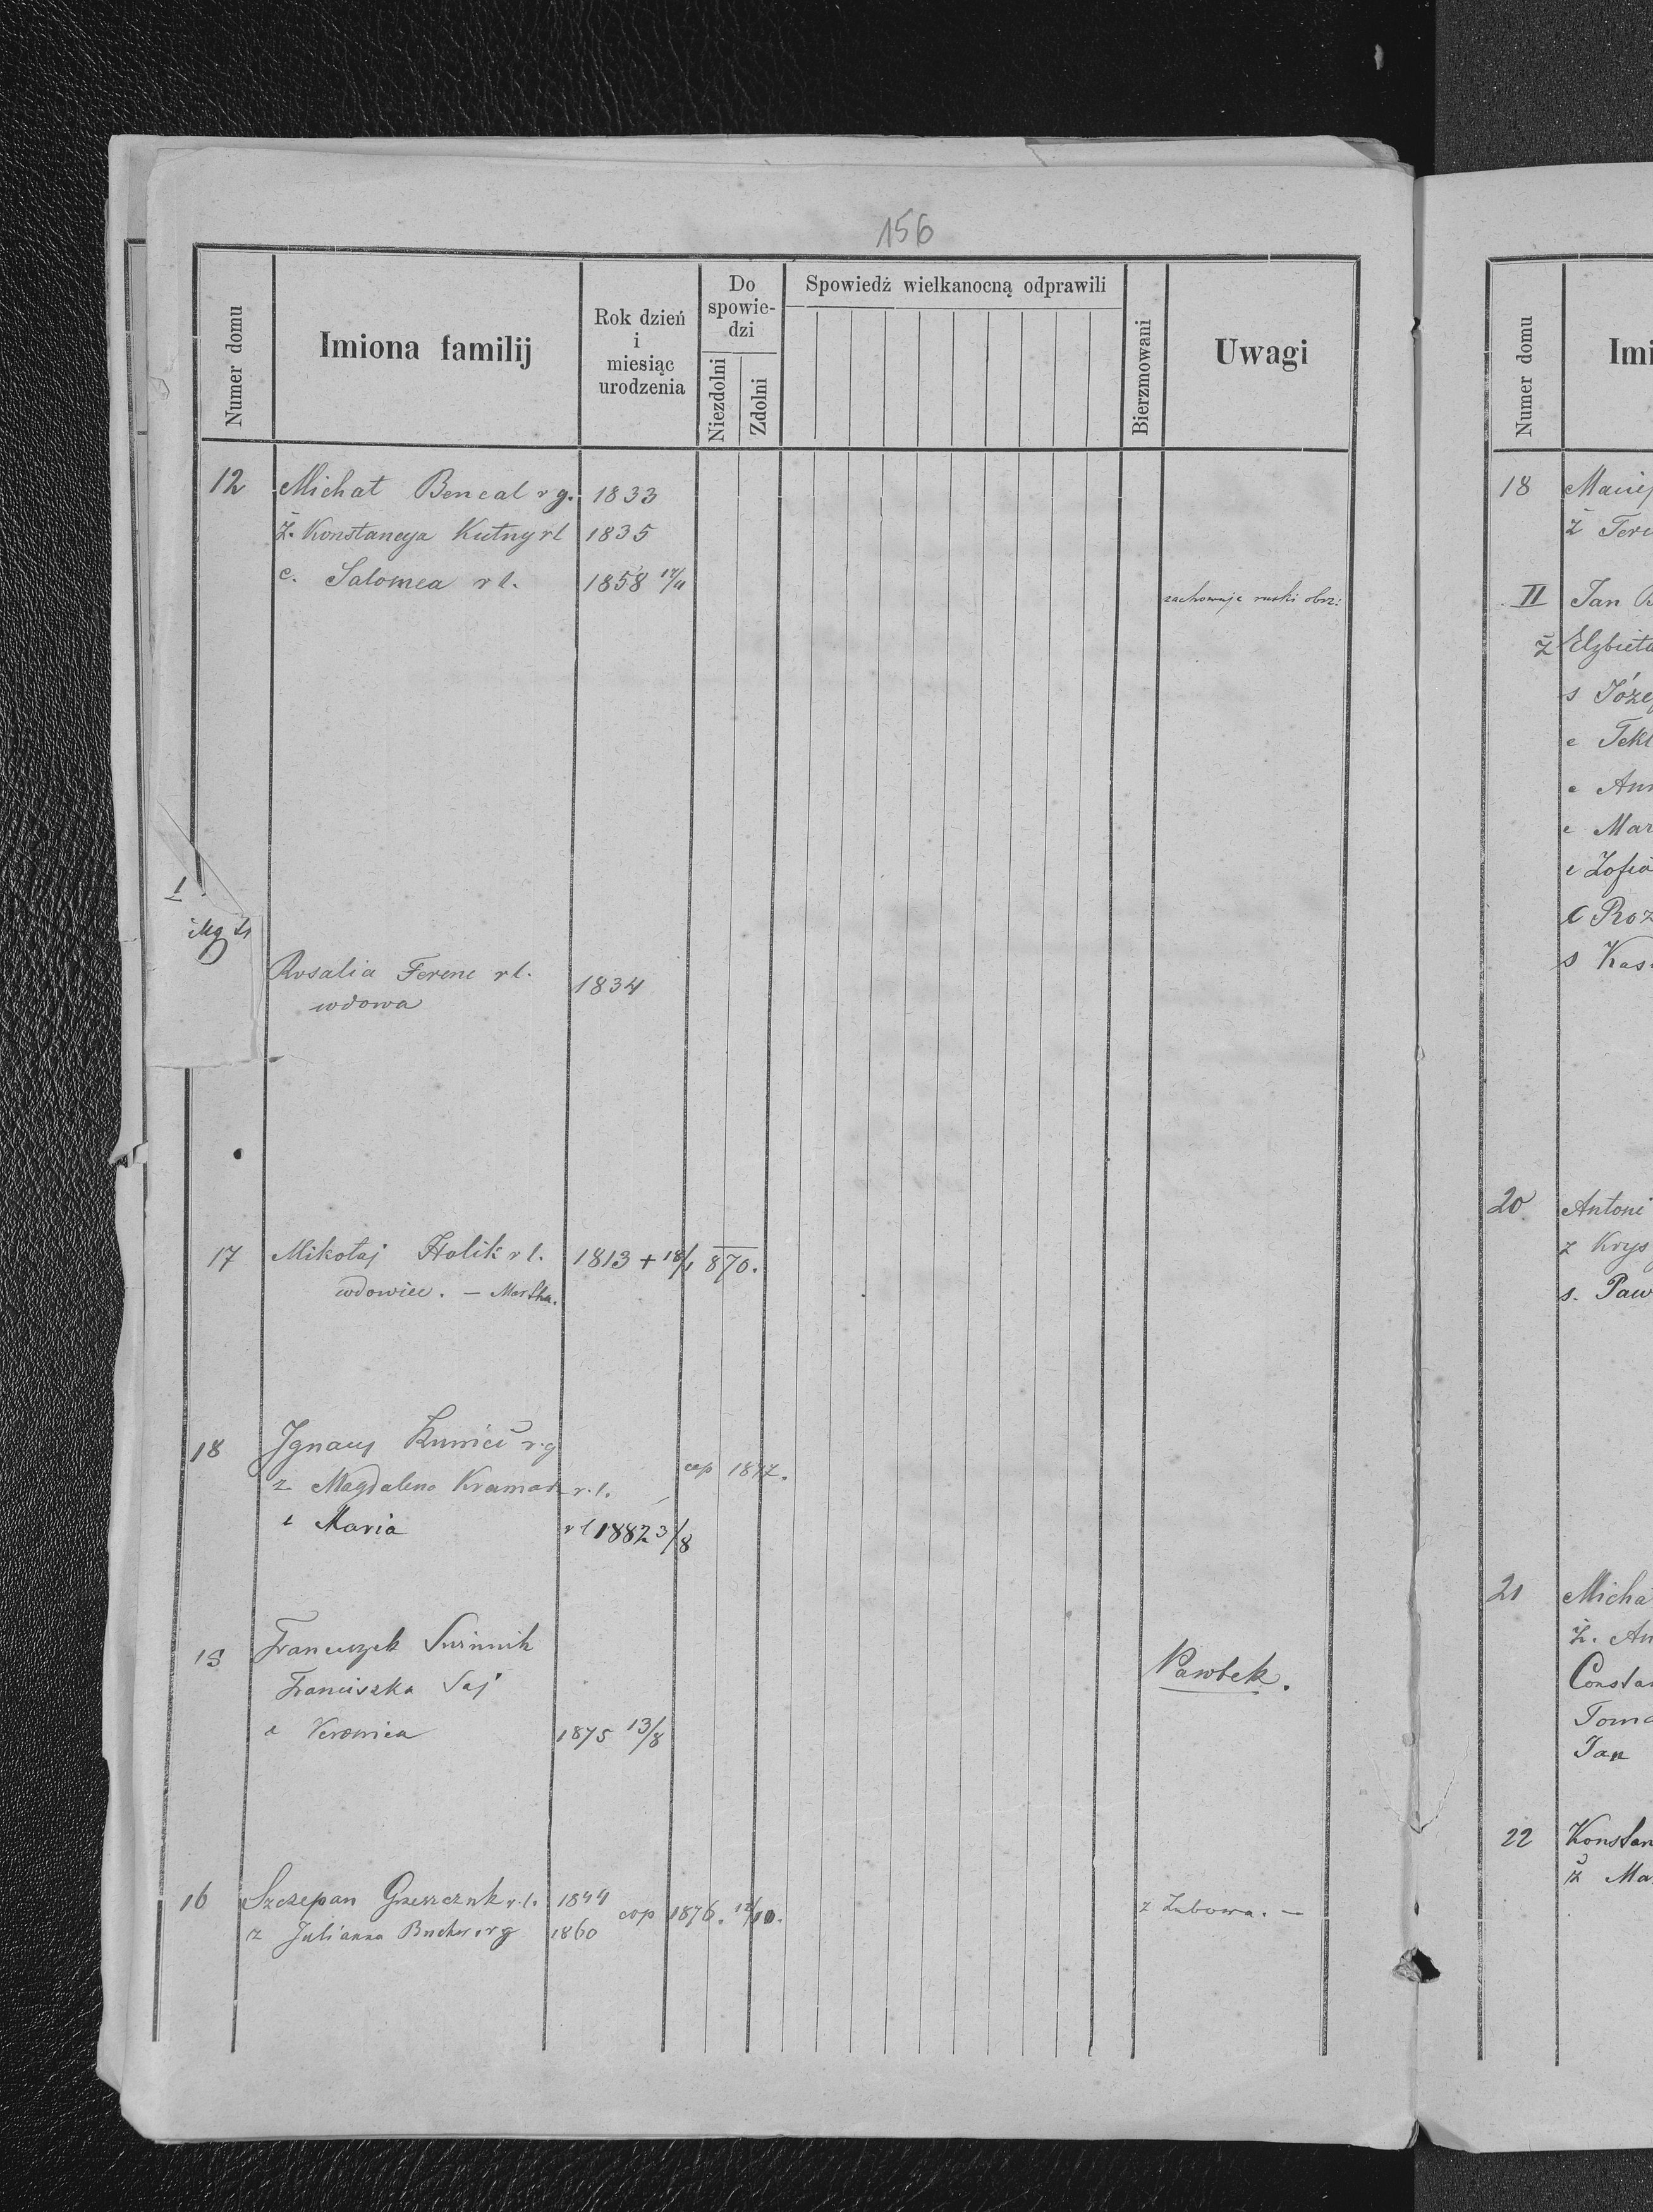 156
Numer domu
Imiona familij
Rok dzień
i
miesiąc
urodzenia
Do
spowie-
dzi
Niezdolni
Zdolni
Spowiedź wielkanocną odprawili
Bierzmowani
Uwagi
12 Michał Bencal r g. 1833
ż. Konstancya Kutny r l 1835
c. Salomea r l. 1858 17/11
zachowuje ruski obrz:
I
Rosalia Ferenc r l. 1834
wdowa
17 Mikołaj Holik r l. 1813 + 18/1 870.
wdowiec. — Martha.
18 Ignacy r. g
ż Magdalena Kramar r. l. cop
c Maria r l 1882 3/8
Franciszek
Franciszka Saj
c Veronica 1875 13/8
Pawłek.
16 Szczepan r. l. 1844
ż Julianna r g 1860
cop 1876. 12/10.
z Zubowa. —
Numer domu
Imi
18 Maciej
ż Ter
II Jan
ż Elżbieta
s Józef
c Tekl
c Ann
c Mar
c Zofia
c Roz
s Kas
20 Antoni
ż Krys
s. Paw
21 Micha
ż. An
Constan
Toma
Jan
22 Konstan
ż Ma